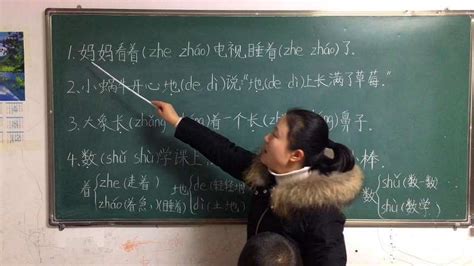 1.妈妈看着(zhe zháo)电视,睡着(zhe zháo)了.
2.小蜗牛开心地(de dì)说"地(de dì)上长满了草莓."
3.大象长(zhǎng )着一个长( )鼻子.
4.数(shǔ shù)学课上 小棒.
着 zhe(走着) zháo(着急,睡着)
地 de(轻轻 dì(土地
数 shǔ(数一数) shù(数学)